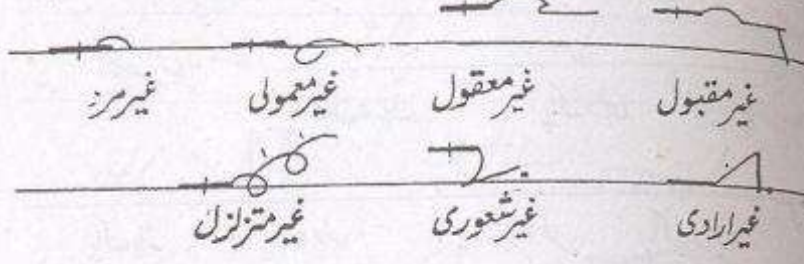 غیر مقبول غیر معقول غیر معمولی غیر مرئی
غیر ارادی غیر شعوری غیر متزلزل